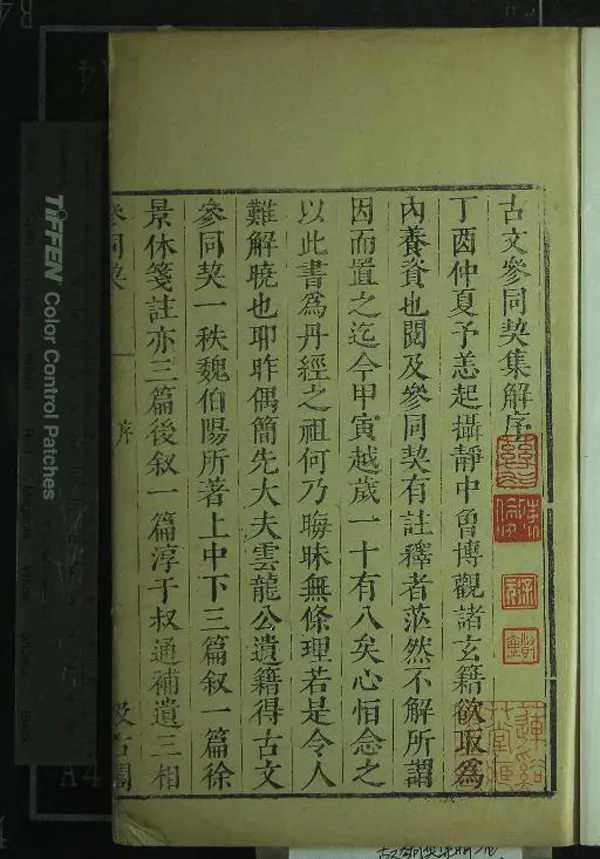 古文參同契集解序
丁酉仲夏予恙起攝靜中曾博觀諸玄籍欲取為
內養資也閱及參同契有註釋者茫然不解所謂
因而置之迄今甲寅越歲一十有八矣心恒念之
以此書為丹經之祖何乃晦昧無條理若是令人
難解曉也耶昨偶簡先大夫雲龍公遺籍得古文
參同契一秩魏伯陽所著上中下三篇叙一篇徐
景休箋註亦三篇後叙一篇淳于叔通補遺三相
參同契 一 序 汲古閣
TIFFEN Color Control Patches
A4